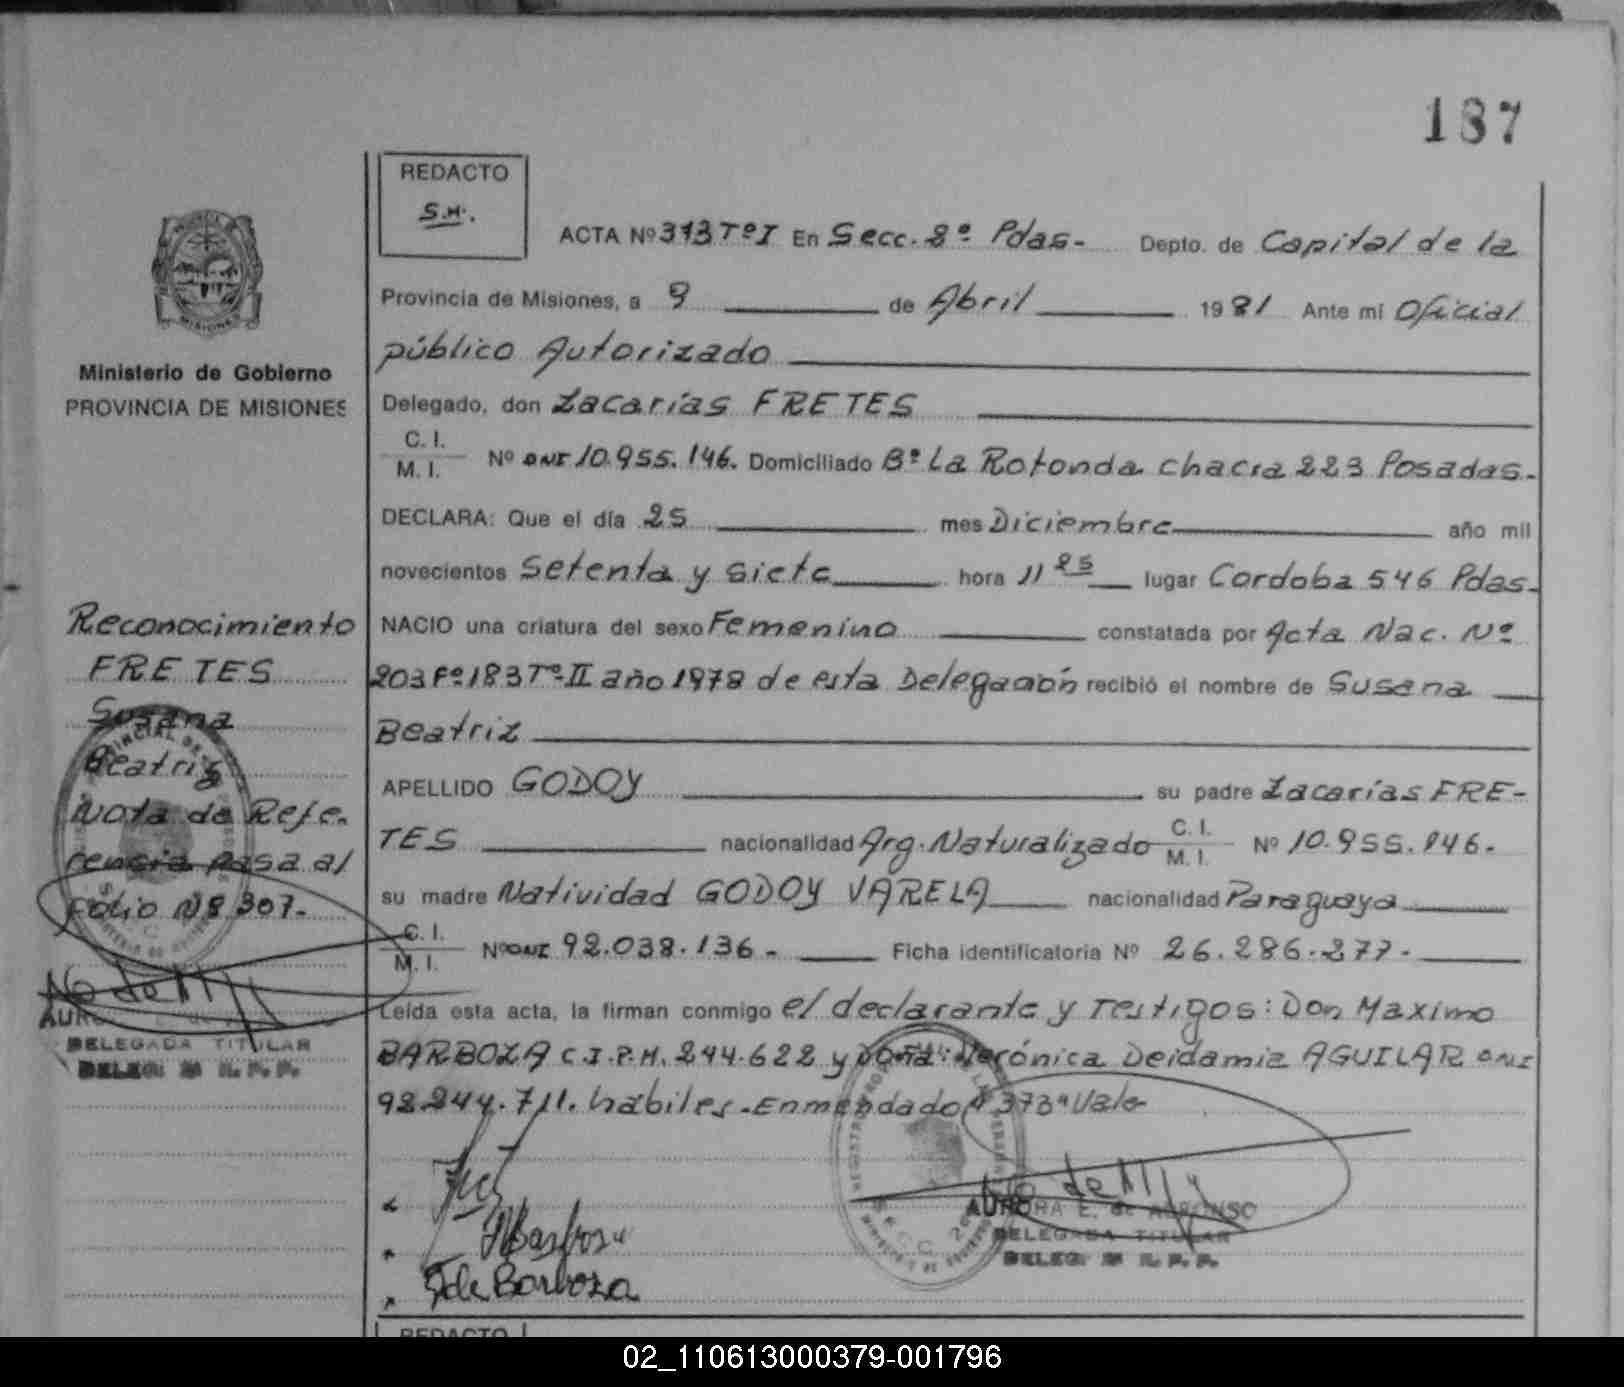 187
REDACTO
S.H.
ACTA Nº 373 Tº I En Secc. 8º Pdas- Depto. de Capital de la
Provincia de Misiones, a 9 de Abril 1981 Ante mi Oficial
público Autorizado
Delegado, don Zacarías FRETES
C. I.
M. I. Nº DNI 10.955.146. Domiciliado Bº La Rotonda chacra 223 Posadas.
DECLARA: Que el día 25 mes Diciembre año mil
novecientos Setenta y Siete hora 11 25 lugar Cordoba 546 Pdas-
NACIO una criatura del sexo Femenino constatada por Acta Nac. Nº
203 Fº 183 Tº II año 1978 de esta Delegación recibió el nombre de Susana
Beatriz
APELLIDO GODOY su padre Zacarías FRE-
TES nacionalidad Arg. Naturalizado C. I. M. I. Nº 10.955.146.
su madre Natividad GODOY VARELA nacionalidad Paraguaya
C. I.
M. I. Nº DNI 92.038.136- Ficha identificatoria Nº 26.286.277-
Leída esta acta, la firman conmigo el declarante y Testigos: Don Maximo
BARBOZA C.I.P.M. 244.622 y Doña: Verónica Deidamia AGUILAR DNI
92.244.711. hábiles-Enmendado "373" Vale
MBarboza
de Barboza
AURORA E. de ALFONSO
DELEGADA TITULAR
MISIONES
Ministerio de Gobierno
PROVINCIA DE MISIONES
Reconocimiento
FRETES
Susana
Beatriz
Nota de Refe-
rencia pasa al
Folio Nº 307-
AURORA E. de
DELEGADA TITULAR
REDACTO
02_110613000379-001796